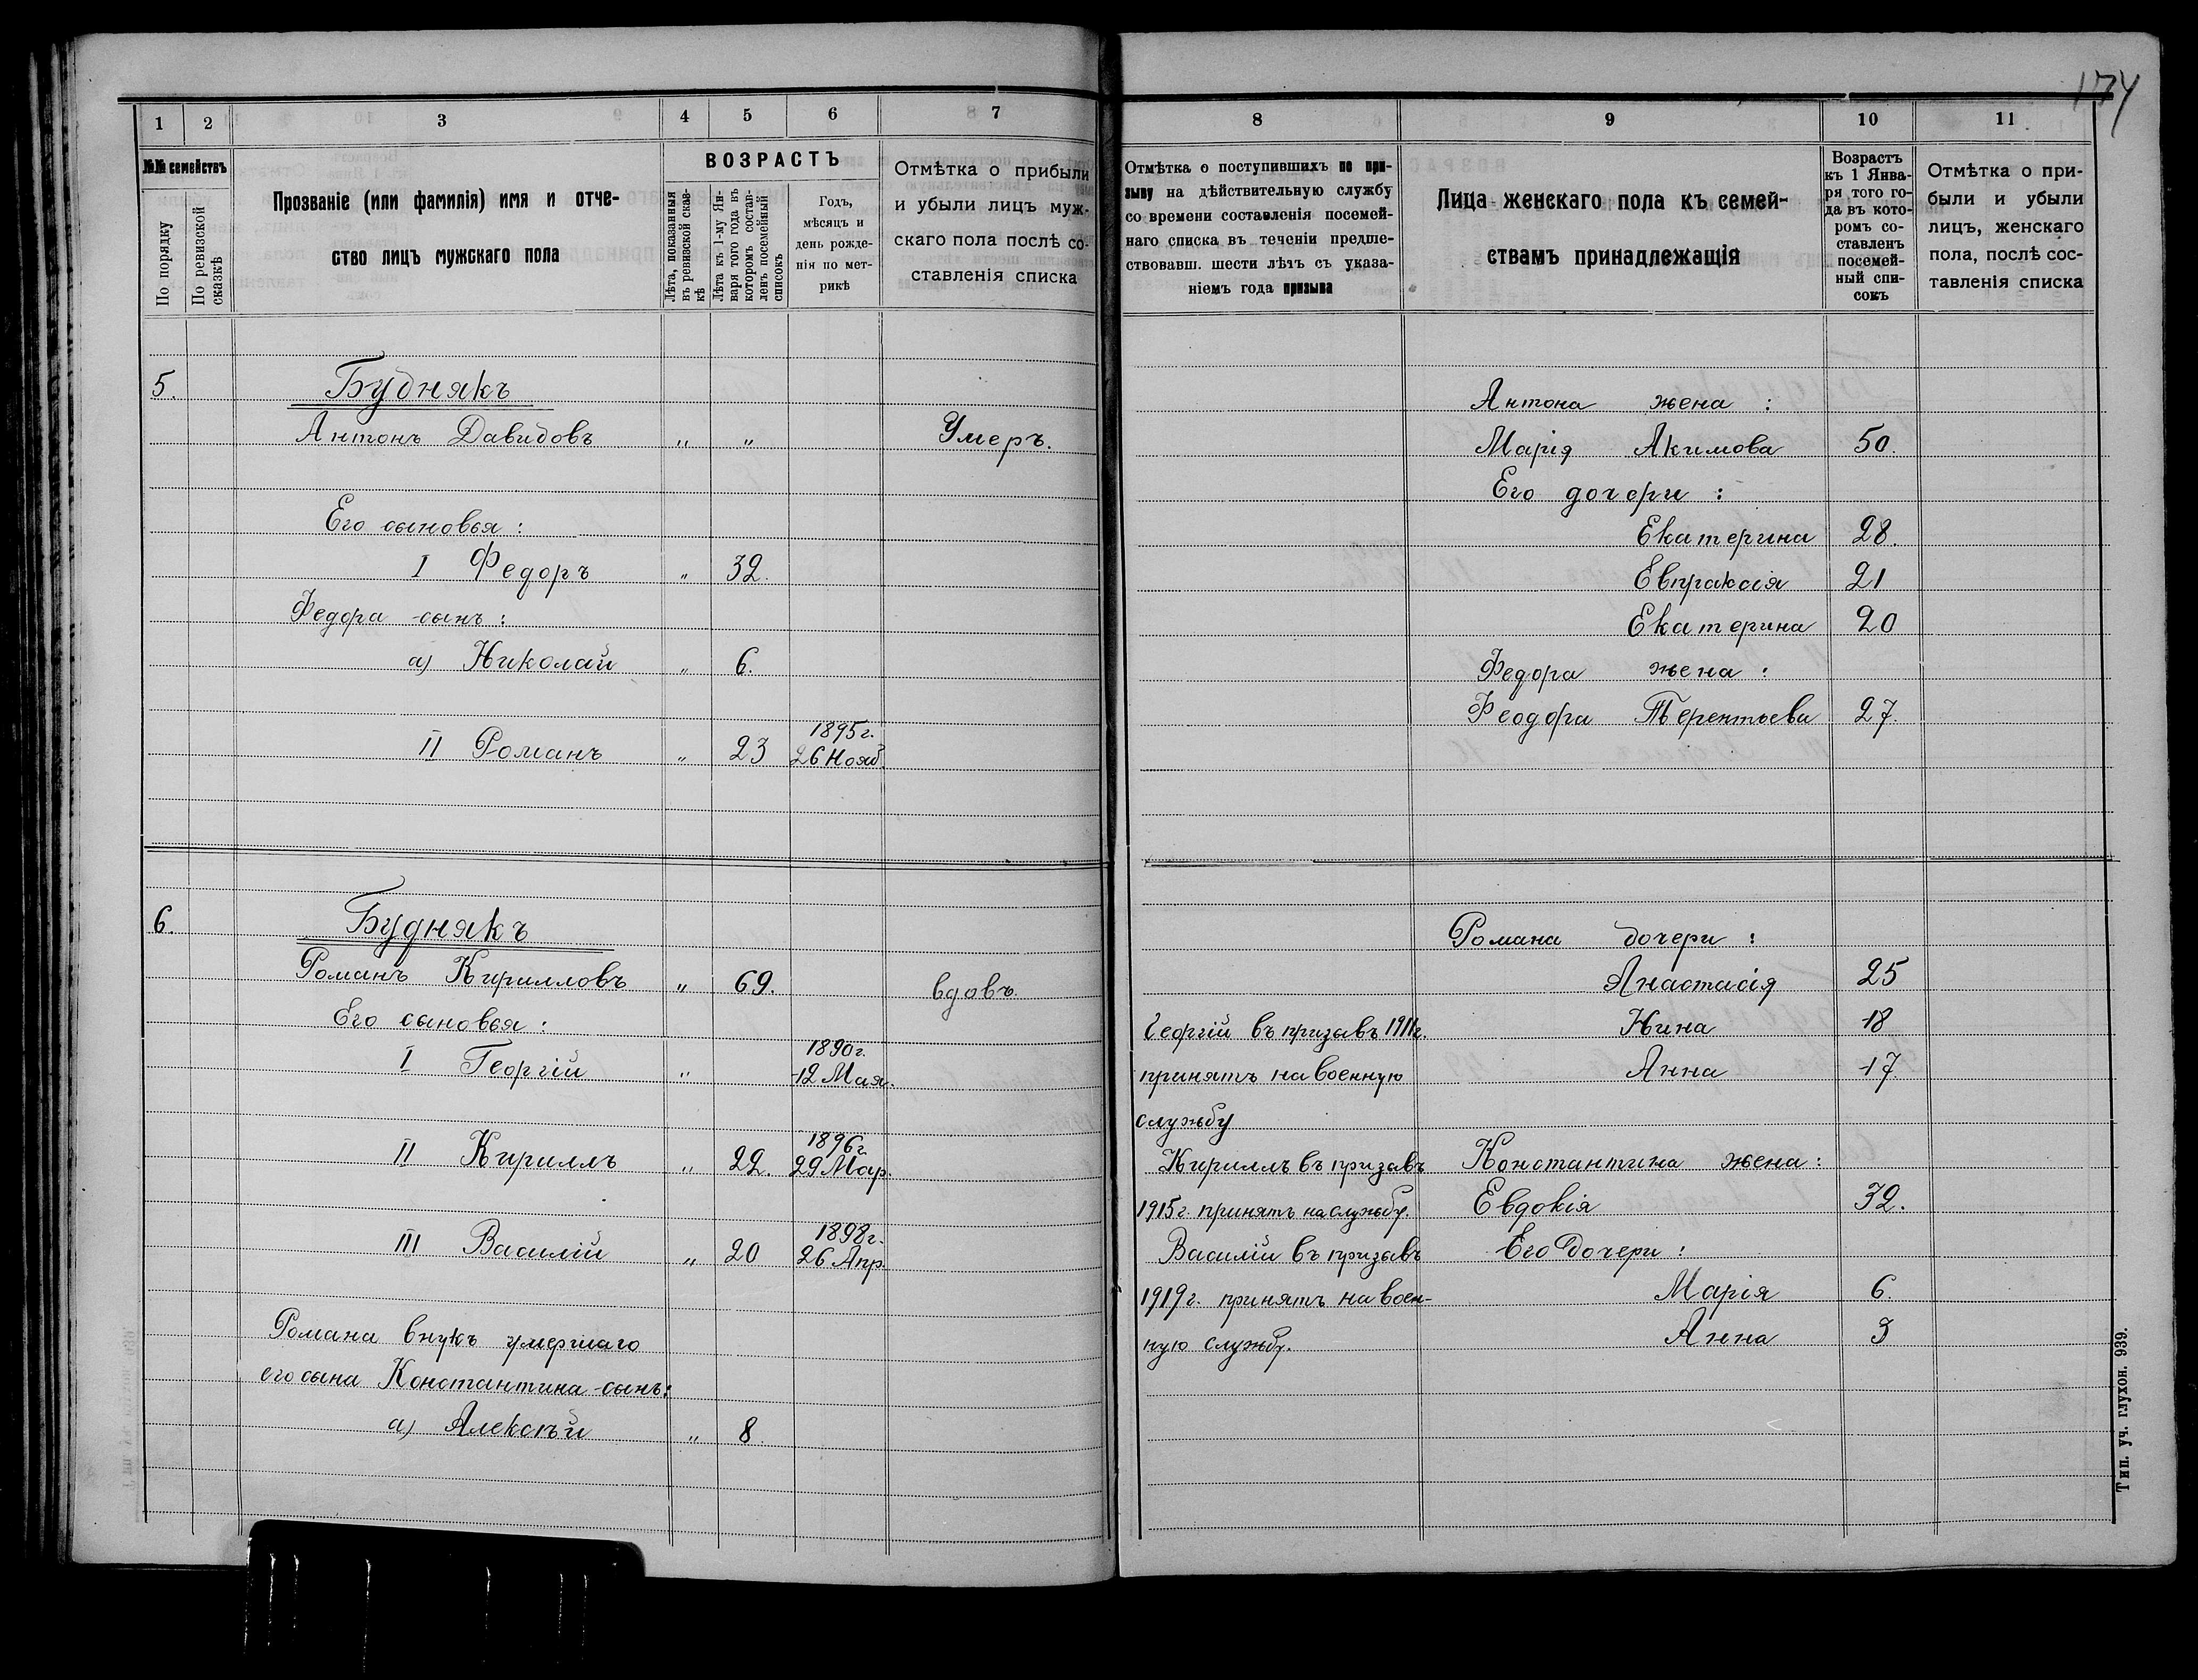 174
1 2 3 4 5 6 7
№№ семействъ
По порядку
По ревизской
сказкѣ
Прозваніе (или фамилія) имя и отче-
ство лицъ мужскаго пола
ВОЗРАСТЪ
Лѣта, показанныя
въ ревизской сказ-
кѣ
Лѣта къ 1-му Ян-
варя того года въ
которомъ состав-
ленъ посемейный
списокъ
Годъ,
мѣсяцъ и
день рожде-
нія по мет-
рикѣ
Отмѣтка о прибыли
и убыли лицъ муж-
скаго пола послѣ со-
ставленія списка
5. Будникъ
Антонъ Давидовъ " " Умеръ.
Его сыновья:
I Федоръ " 32.
Федора сынъ:
а) Николай " 6.
1895г.
II Романъ " 23 26 Нояб.
6. Буднякъ
Романъ Кирилловъ " 69. вдовъ.
Его сыновья:
1890г.
I Георгій " 12 Мая.
1896г.
II Кириллъ " 22. 29 Мар.
1898г.
III Василій " 20 26 Апр.
Романа внукъ умершаго
его сына Константина сынъ:
а) Алексѣй " 8.
8 9 10 11
Отмѣтка о поступившихъ по при-
зыву на дѣйствительную службу
со времени составленія посемей-
наго списка въ теченіи предше-
ствовавш. шести лѣтъ съ указа-
ніемъ года призыва
Лица женскаго пола къ семей-
ствамъ принадлежащія
Возрастъ
къ 1 Янва-
ря того го-
да въ кото-
ромъ со-
ставленъ
посемей-
ный спи-
сокъ
Отмѣтка о при-
были и убыли
лицъ, женскаго
пола, послѣ сос-
тавленія списка
Антона жена:
Марія Акимова 50.
Его дочери:
Екатерина 28.
Евпраксія 21
Екатерина 20
Федора жена:
Феодора Терентьева 27.
Романа дочери:
Анастасія 25
Георгій въ призывъ 1911г. Нина 18
принятъ на военную Анна 17.
службу
Кириллъ въ призывъ Константина жена:
1915г. принятъ на службу. Евдокія 32.
Василій въ призывъ Его дочери:
1919г. принятъ на воен- Марія 6.
ную службу. Анна 3
Тип. уч. глухон. 939.